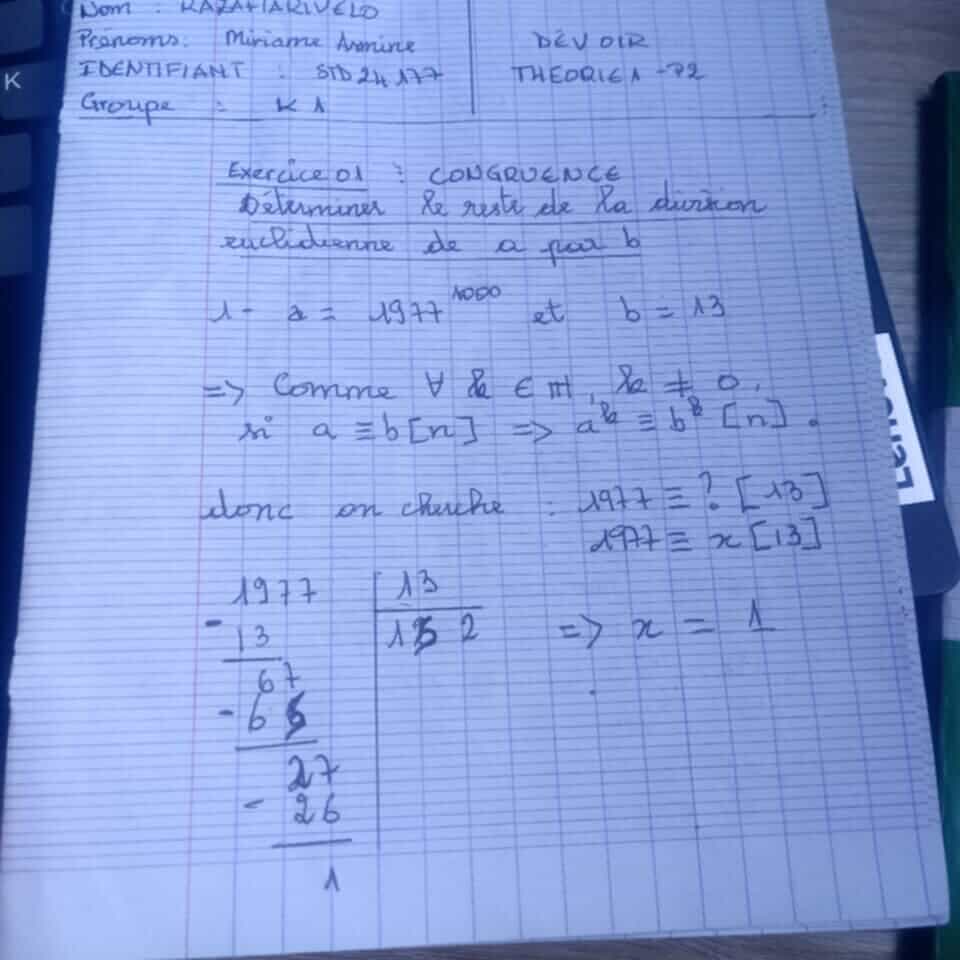 Nom : RAZAFIARIVELO
Prénoms: Miriame Annine
IDENTIFIANT : STD 24 177
Groupe : K 1
DEVOIR
THEORIE 1 - P2
Exercice 01 : CONGRUENCE
Déterminer le reste de la division
euclidienne de a par b
1 - a = 1977^1000 et b = 13
=> Comme ∀ k ∈ , k ≠ 0,
si a ≡ b [n] => a^k ≡ b^k [n].
donc on cherche : 1977 ≡ ? [13]
1977 ≡ x [13]
1977 | 13
- 13 | 152 => x = 1
67
- 65
27
- 26
1
K